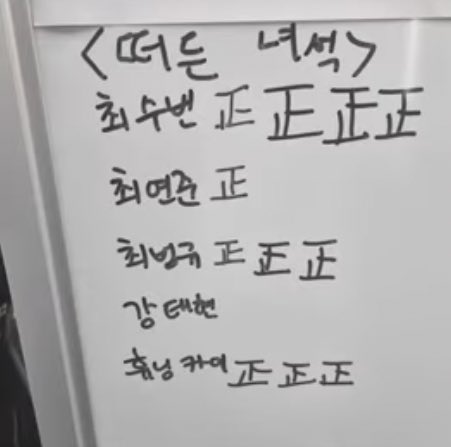 <떠든 녀석>
최수빈 正 正 正 正
최연준 正
최범규 正 正 正
강태현
휴닝카이 正 正 正